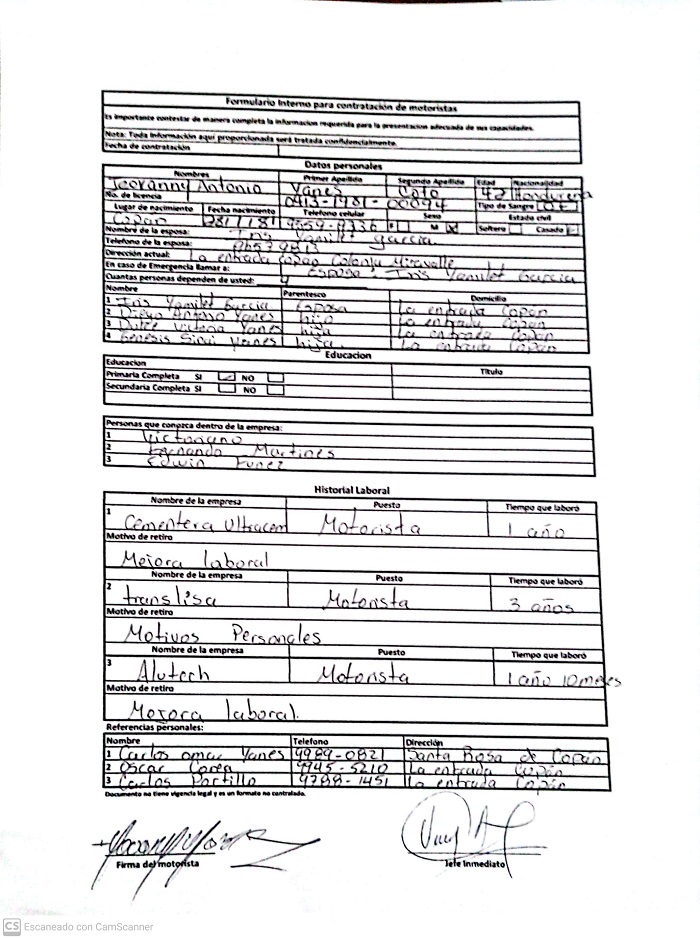 Formulario Interno para contratación de motoristas
Es importante contestar de manera completa la informacion requerida para la presentacion adecuada de sus capacidades.
Nota: Toda información aquí proporcionada será tratada confidencialmente.
Fecha de contratación
Datos personales
Nombres Primer Apellido Segundo Apellido Edad Nacionalidad
Jeovanny Antonio Yanes Coto 42 Hondureña
No. de licencia 0413-1981-00094 Tipo de Sangre
Lugar de nacimiento Fecha nacimiento Telefono celular Sexo Estado civil
Copán 9559-9336 F M X Soltero Casado
Nombre de la esposa: Iris Yamilet Garcia
Telefono de la esposa:
Dirección actual: La entrada Copan Colonia Miravalle
En caso de Emergencia llamar a: Esposa: Iris Yamilet Garcia
Cuantas personas dependen de usted: 4
Nombre Parentesco Domicilio
1 Iris Yamilet Garcia Esposa La entrada Copan
2 Diego Yanes hijo La entrada Copan
3 Dulce Yanes hija La entrada Copán
4 Genesis Sinai Yanes hija. La entrada Copán
Educacion
Educacion Titulo
Primaria Completa SI NO
Secundaria Completa SI NO
Personas que conozca dentro de la empresa:
1 Victoriano
2 Fernando Martines
3 Edwin Funez
Historial Laboral
Nombre de la empresa Puesto Tiempo que laboró
1 Cementera Ultracem Motorista 1 año
Motivo de retiro
Mejora laboral
Nombre de la empresa Puesto Tiempo que laboró
2 translisa Motorista 3 años
Motivo de retiro
Motivos Personales
Nombre de la empresa Puesto Tiempo que laboró
3 Alutech Motorista 1 año 10 meses
Motivo de retiro
Mejora laboral.
Referencias personales:
Nombre Telefono Dirección
1 Carlos omar Yanes 9989-0821 Santa Rosa de Copán
2 Oscar Corea 9945-5210 La entrada Copán
3 Carlos Portillo 9788-1451 La entrada Copán
Documento no tiene vigencia legal y es un formato no contralado.
Firma del motorista Jefe Inmediato
CS Escaneado con CamScanner